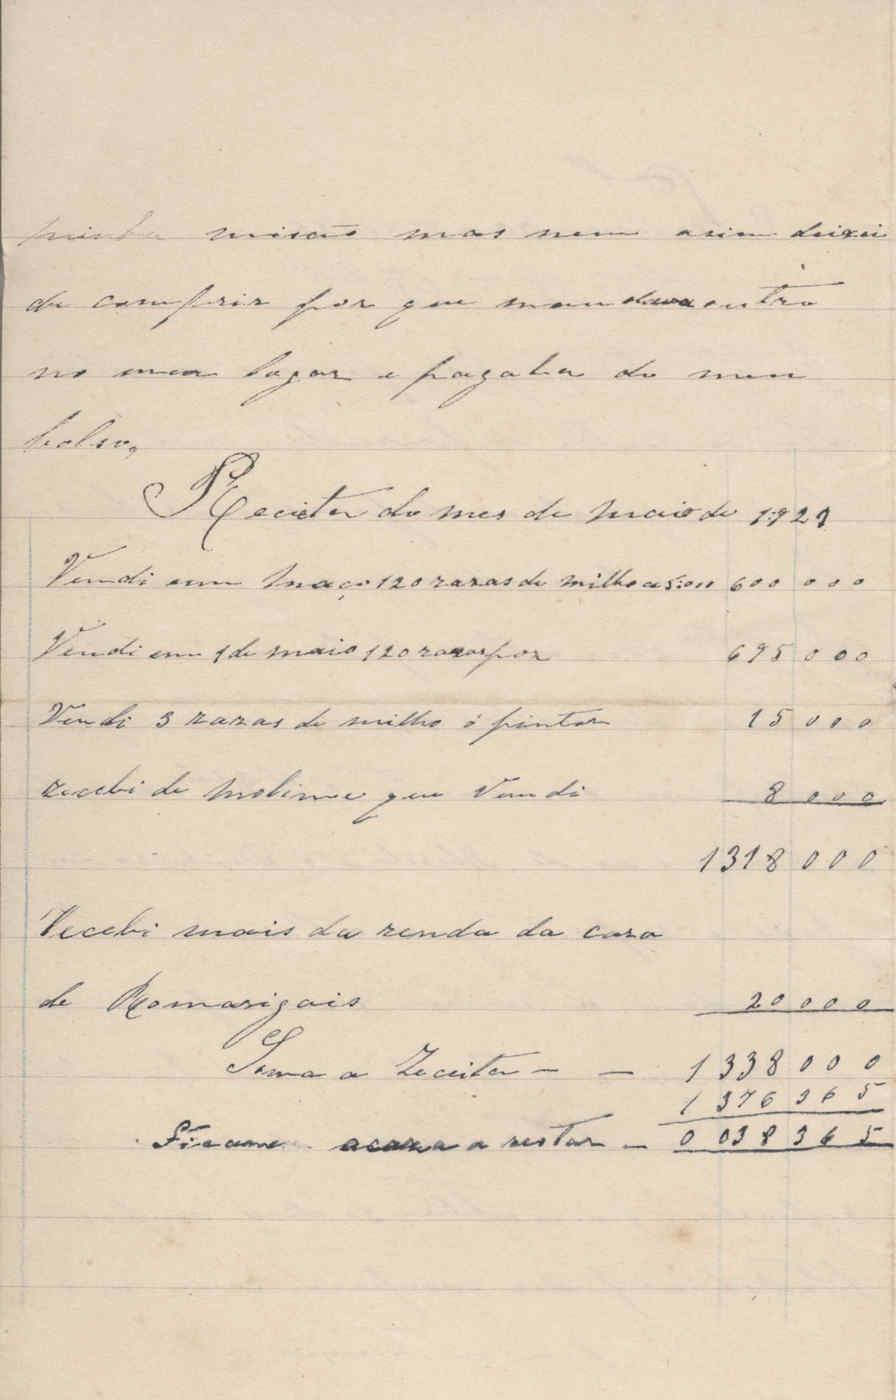 minha misão mas nem asim deixei
de comprir por que mandava outro
no meu logar e pagaba do meu
bolso,
Receita do mes de Maio de 1921
Vendi em Março 120 razas de milho a 5:00 600 000
Vendi em 1 de maio 120 razas por 695 000
Vendi 3 razas de milho ó pintor 15 000
recebi de que Vendi 8 000
1318 000
Recebi mais da renda da caza
de Romarigais 20 000
Soma a Receita - - 1338 000
1376 365
acaza a restar - 0 038 365